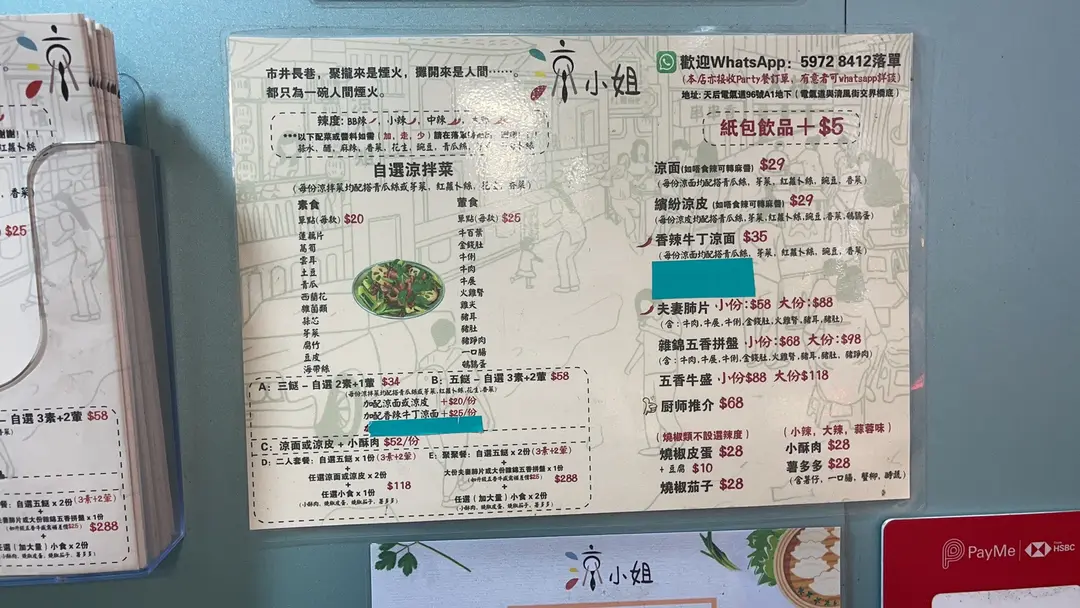 京小姐
市井長巷，聚攏來是煙火，攤開來是人間……。
都只為一碗人間煙火。
辣度: BB辣、小辣、中辣、
***以下配菜或醬料如需(加，走，少)請在落單
蒜水、醋、麻辣、香菜、花生、豌豆、青瓜絲、
自選涼拌菜
(每份涼拌菜均配搭青瓜絲或芽菜，紅蘿卜絲，花生，香菜)
素食
單點(每款) $20
蓮藕片
萵筍
雲耳
土豆
青瓜
西蘭花
雜菌類
蒜芯
芽菜
腐竹
豆皮
海帶絲
葷食
單點(每款) $25
牛百葉
金錢肚
牛脷
牛肉
牛展
火雞腎
雞夾
豬耳
豬肚
豬踭肉
一口腸
鵪鶉蛋
A: 三餸 – 自選 2素+1葷 $34
B: 五餸 – 自選 3素+2葷 $58
(每份涼拌菜均配搭青瓜絲或芽菜,紅蘿卜絲,花生,香菜)
加配涼面或涼皮 +$20/份
加配香辣牛丁涼面+$25/份
C: 涼面或涼皮 + 小酥肉 $52/份
D: 二人套餐: 自選五餸 x 1份 (3素+2葷)
+
任選涼面或涼皮 x 2份
+
任選小食 x 1份
(小酥肉, 燒椒皮蛋, 燒椒茄子, 薯多多)
$118
E: 聚聚餐: 自選五餸 x 2份 (3素+2葷)
+
大份夫妻肺片或大份雜錦五香拼盤 x 1份
(如升級五香牛盛需補差價$25)
+
任選 (加大量) 小食 x 2份
(小酥肉, 燒椒皮蛋, 燒椒茄子, 薯多多)
$288
歡迎WhatsApp: 5972 8412落單
(本店亦接收Party餐訂單，有意者可whatsapp詳談)
地址: 天后電氣道96號A1地下 (電氣道與清風街交界橋底)
紙包飲品＋$5
涼面(如唔食辣可轉麻醬) $29
(每份涼面均配搭青瓜絲，芽菜，紅蘿卜絲，豌豆，香菜)
繽紛涼皮(如唔食辣可轉麻醬) $29
(每份涼皮均配搭青瓜絲,芽菜,紅蘿卜絲,豌豆,香菜,鵪鶉蛋)
香辣牛丁涼面 $35
(每份涼面均配搭青瓜絲，芽菜，紅蘿卜絲，豌豆，香菜)
夫妻肺片 小份:$58 大份:$88
(含: 牛肉,牛展,牛脷,金錢肚,火雞腎,豬耳,豬肚)
雜錦五香拼盤 小份:$68 大份:$98
(含: 牛肉,牛展,牛脷,金錢肚,火雞腎,豬耳,豬肚,豬踭肉)
五香牛盛 小份$88 大份$118
厨师推介 $68
(燒椒類不設選辣度)
燒椒皮蛋 $28
+ 豆腐 $10
燒椒茄子 $28
(小辣，大辣，蒜蓉味)
小酥肉 $28
薯多多 $28
(含薯仔，一口腸，蟹柳，時蔬)
京小姐
PayMe
HSBC
京
$25
自選 3素+2葷 $58
餐: 自選五餸 x 2份 (3素+2葷)
+
妻肺片或大份雜錦五香拼盤 x 1份
(如升級五香牛盛需補差價$25)
+
任選 (加大量) 小食 x 2份
$288